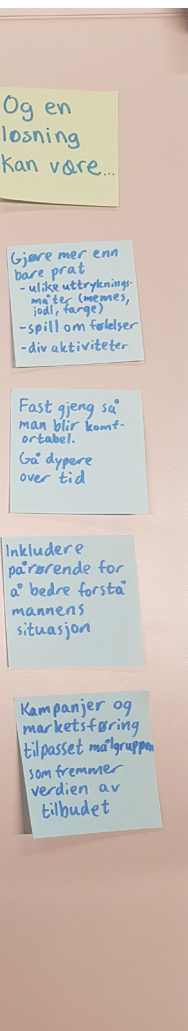 Og en
løsning
kan være...
Gjøre mer enn
bare prat
- ulike uttryknings-
måter (memes,
jodl, farge)
- spill om følelser
- div aktiviteter
Fast gjeng så
man blir komf-
ortabel.
Gå dypere
over tid
Inkludere
pårørende for
å bedre forstå
mannens
situasjon
Kampanjer og
marketsføring
tilpasset målgruppen
som fremmer
verdien av
tilbudet